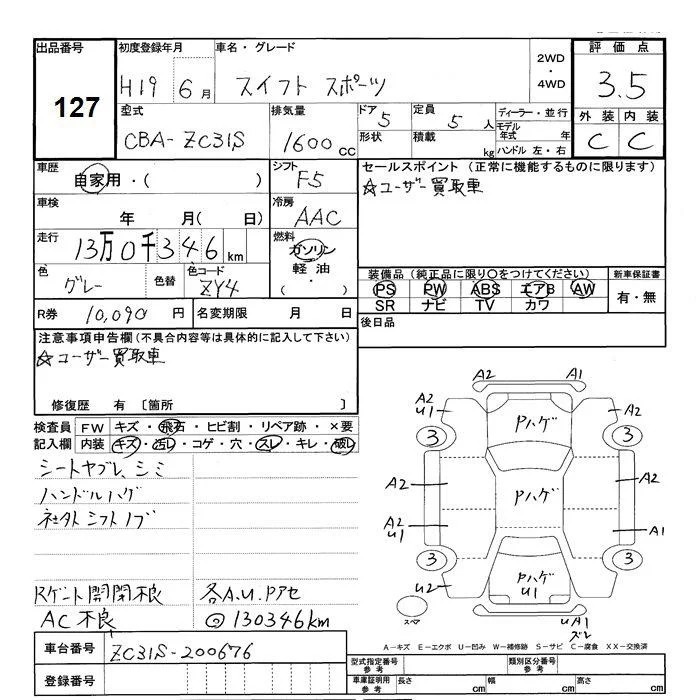 出品番号
127
初度登録年月
H19 6月
車名・グレード
スイフト スポーツ
2WD
・
4WD
評価点
3.5
外装 内装
C C
型式
CBA-ZC31S
排気量
1600cc
ドア
5
定員
5人
形状
積載
kg
ディーラー・並行
モデル年式 年
ハンドル 左・右
車歴
自家用・( )
シフト
F5
セールスポイント (正常に機能するものに限ります)
☆ユーザー買取車
車検
年 月( 日)
冷房
AAC
走行
13万0千346km
燃料
ガソリン
軽油
( ・ )
色
グレー
色替
色コード
ZY4
装備品(純正品に限り○をつけてください)
PS PW ABS エアB AW
SR ナビ TV カワ
新車保証書
有・無
R券 10,090円
名変期限 月 日
後日品
注意事項申告欄(不具合内容等は具体的に記入して下さい)
☆ユーザー買取車
修復歴 有 〔箇所 〕
検査員記入欄
FW キズ・飛石・ヒビ割・リペア跡・×要
内装 キズ・汚レ・コゲ・穴・スレ・キレ・破レ
シートヤブレ、シミ
ハンドルハゲ
社外シフトノブ
Rゲート開閉不良
AC不良
各A.U.Pアセ
@130346km
A2 A1
A2
U1
A2
Pハゲ
3 3
A2
Pハゲ
A2
A2
U1
A1
3 3
U2
Pハゲ
U1
A2
スペア
UA1
ズレ
A-キズ E-エクボ U-凹み W-補修跡 S-サビ C-腐食 XX-交換済
車台番号
ZC31S-200676
登録番号
型式指定番号
参考
類別区分番号
参考
車庫証明用
参考
長さ cm 幅 cm 高さ cm